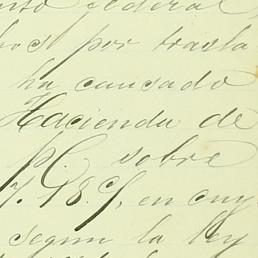 ento federal
hos por trasla
ha causado
Hacienda de
P. C. sobre
en cuy
segun la ley